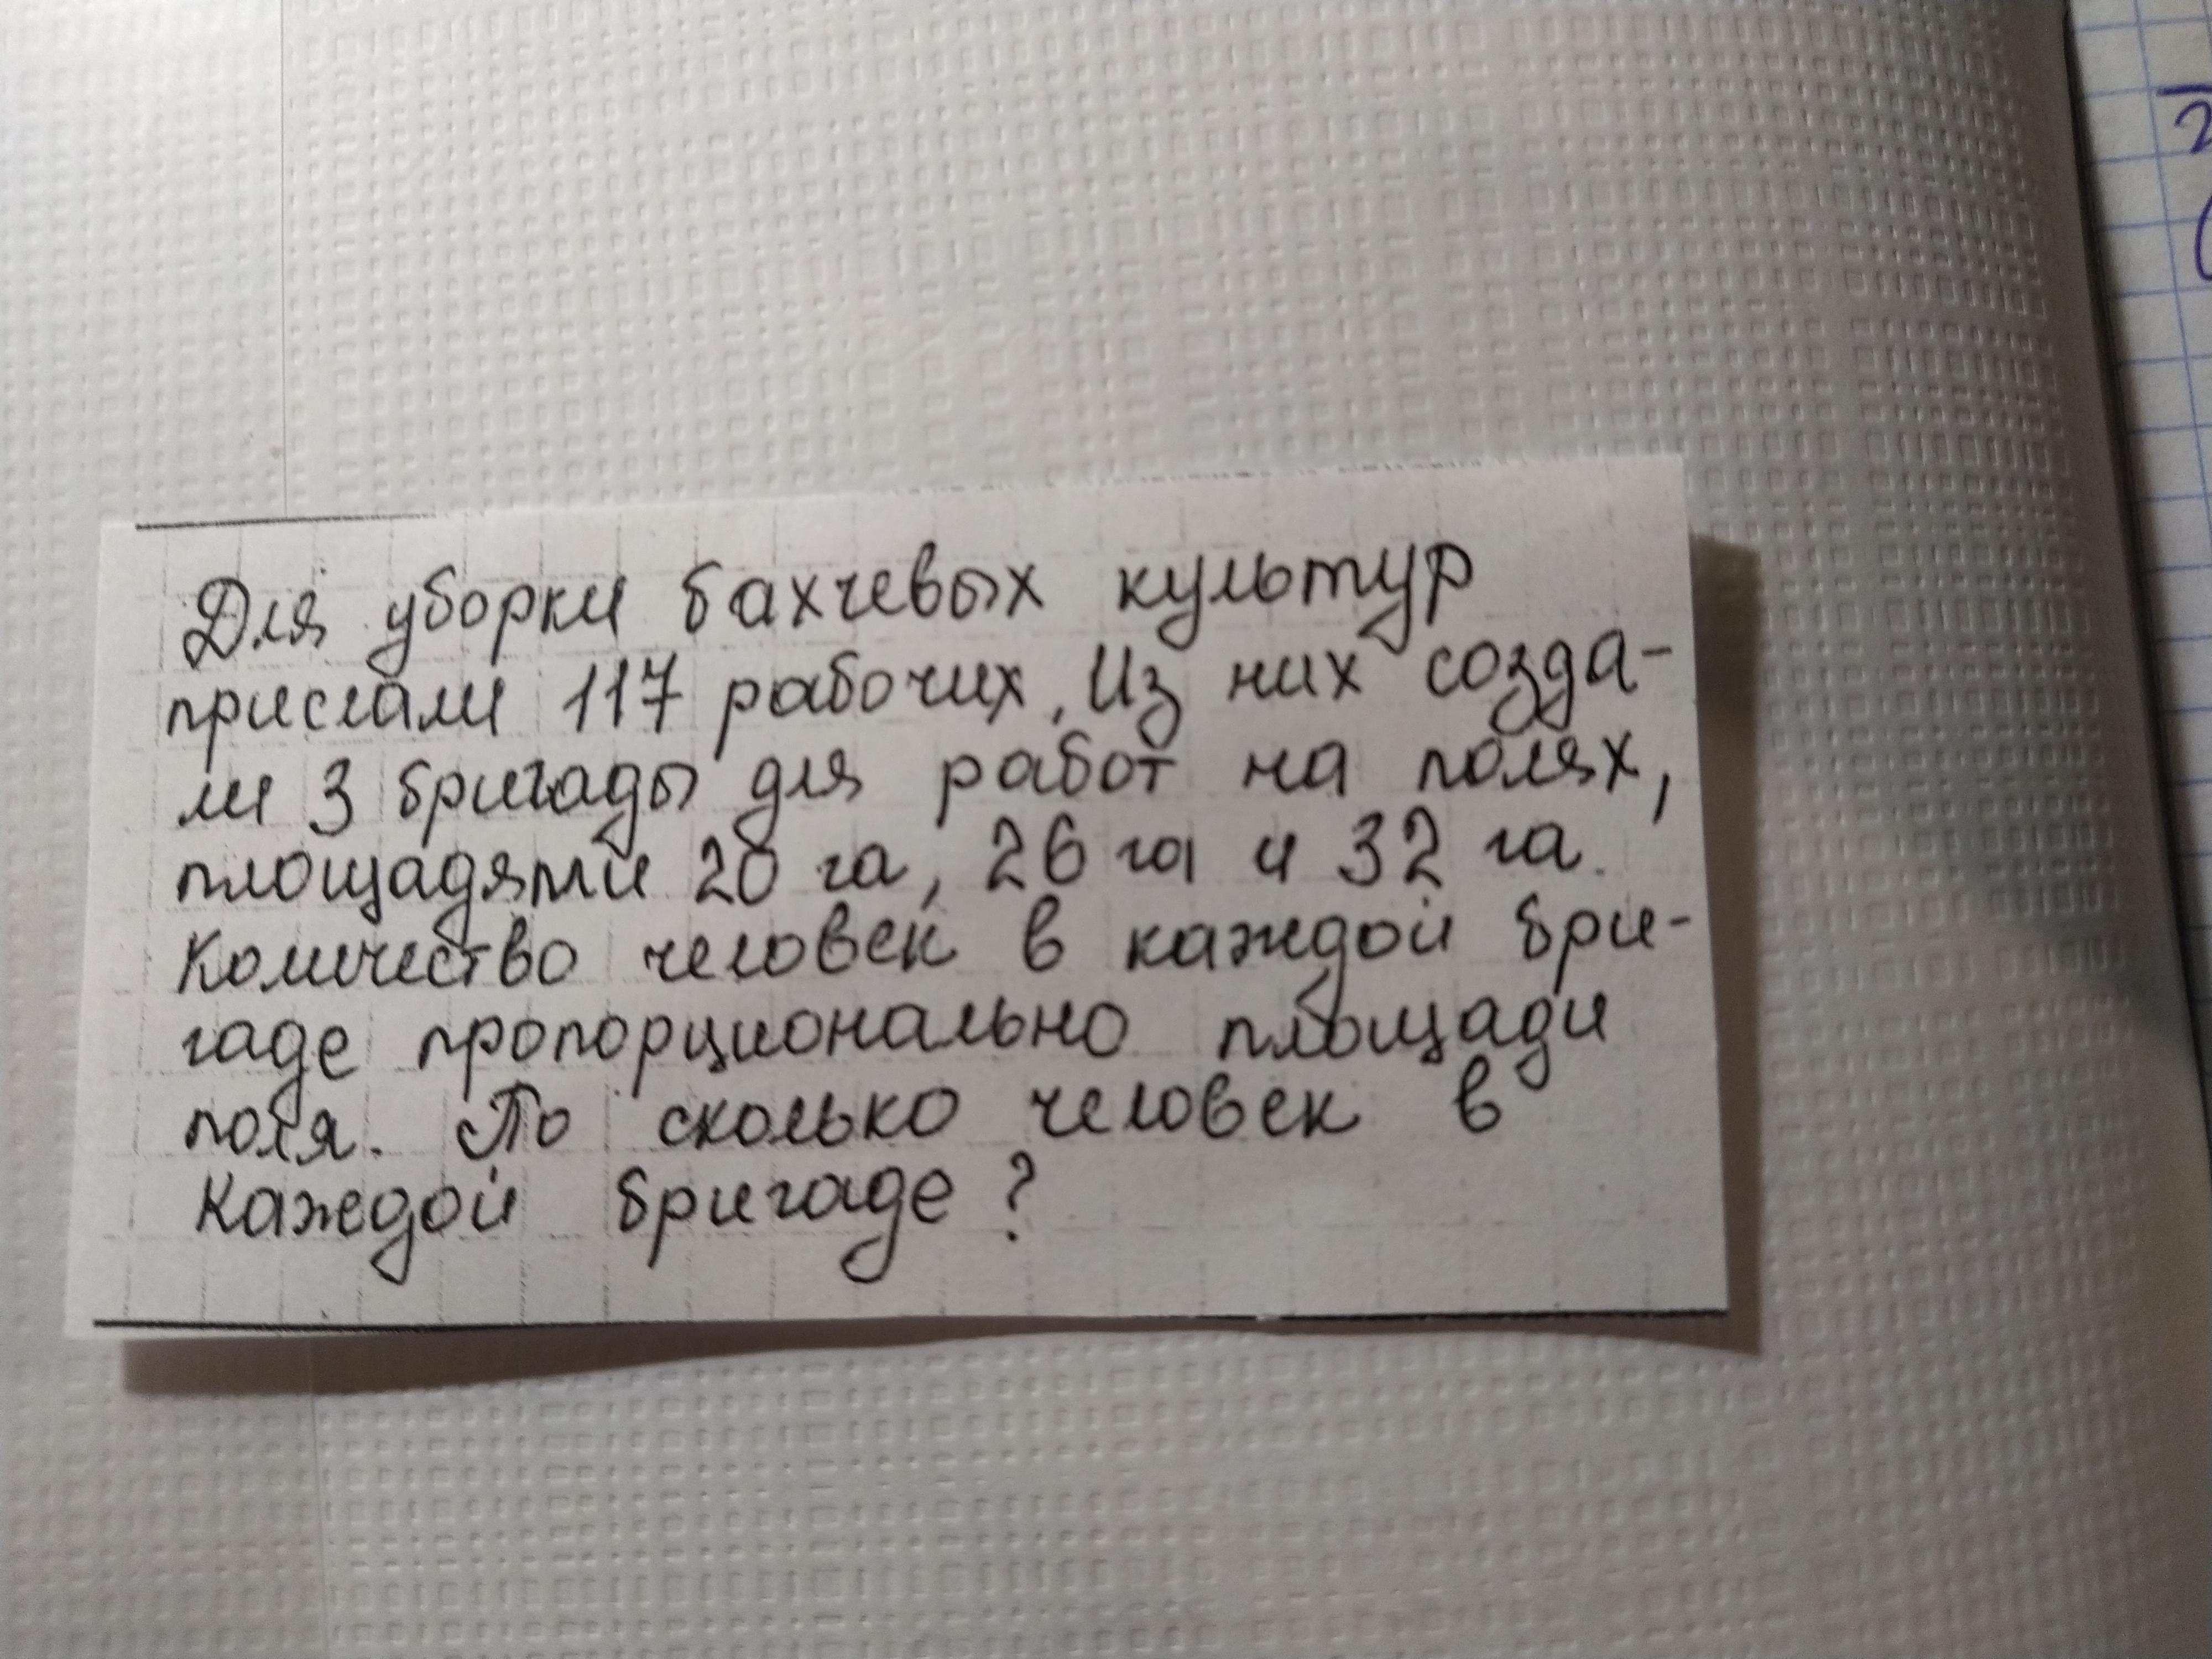 Для уборки бахчевых культур
прислали 117 рабочих. Из них созда-
ли 3 бригады для работ на полях,
площадями 20 га, 26 га и 32 га.
Количество человек в каждой бри-
гаде пропорционально площади
поля. По сколько человек в
каждой бригаде?
2